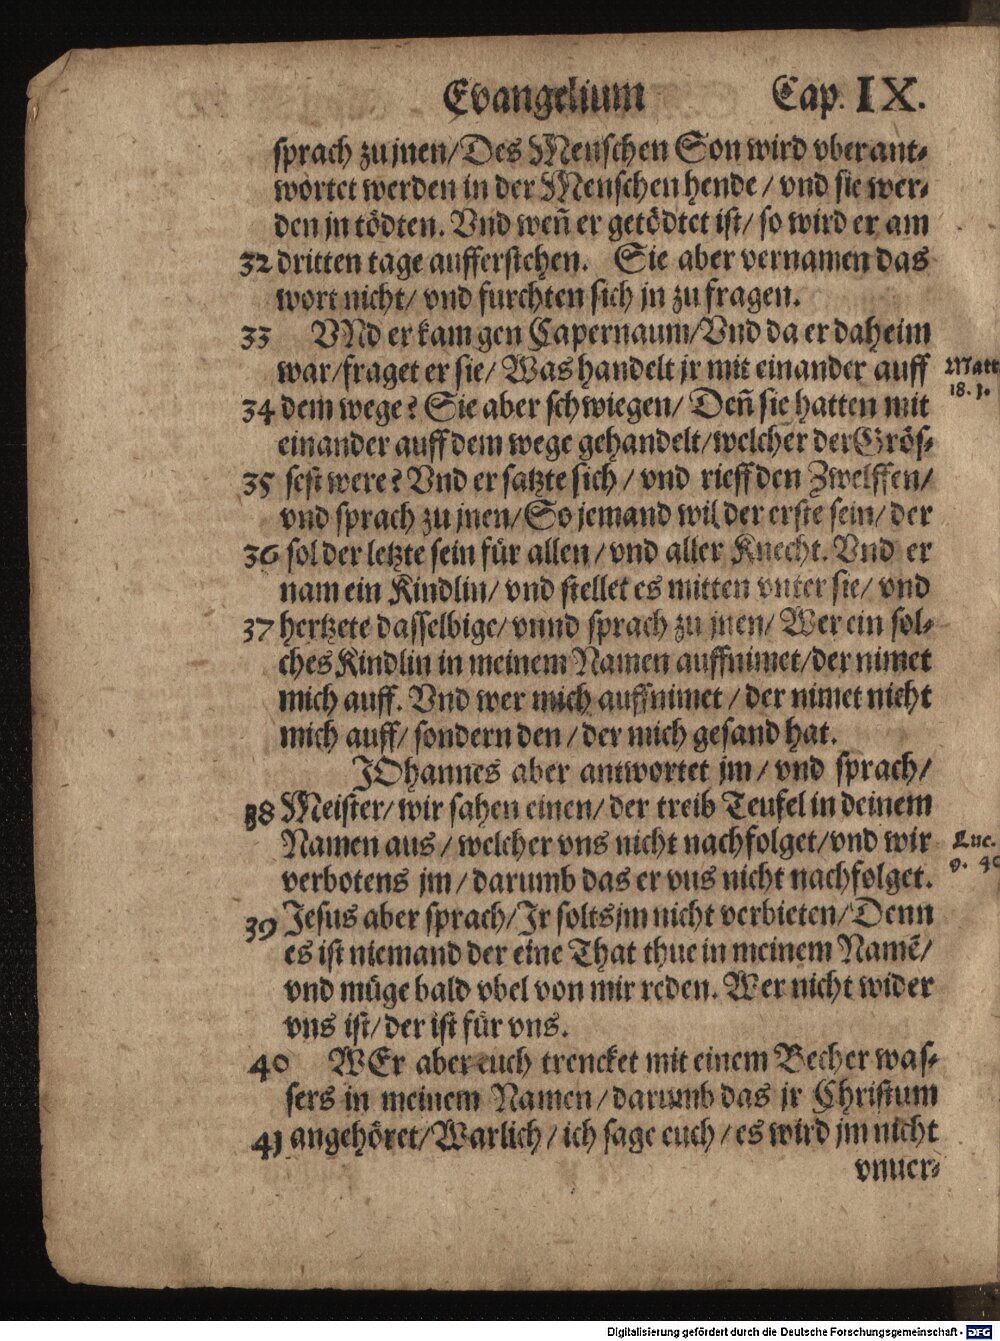 Evangelium Cap. IX.
sprach zu jnen/ Des Menschen Son wird vberant-
wortet werden in der Menschen hende / vnd sie wer-
den jn tödten. Vnd weñ er getödtet ist/ so wird er am
32 dritten tage aufferstehen. Sie aber vernamen das
wort nicht/ vnd furchten sich jn zu fragen.
33 VNd er kam gen Capernaum/ Vnd da er daheim
war/ fraget er sie/ Was handelt jr mit einander auff
Matt
18. 1.
34 dem wege? Sie aber schwiegen/ Deñ sie hatten mit
einander auff dem wege gehandelt/ welcher der Grös-
35 sest were? Vnd er satzte sich / vnd rieff den Zwelffen/
vnd sprach zu jnen/ So jemand wil der erste sein/ der
36 sol der letzte sein für allen / vnd aller Knecht. Vnd er
nam ein Kindlin/ vnd stellet es mitten vnter sie/ vnd
37 hertzete dasselbige/ vnnd sprach zu jnen/ Wer ein sol-
ches Kindlin in meinem Namen auffnimet/ der nimet
mich auff. Vnd wer mich auffnimet / der nimet nicht
mich auff/ sondern den / der mich gesand hat.
JOhannes aber antwortet jm / vnd sprach/
38 Meister/ wir sahen einen/ der treib Teufel in deinem
Namen aus / welcher vns nicht nachfolget/ vnd wir
Luc.
9. 49
verbotens jm / darumb das er vns nicht nachfolget.
39 Jesus aber sprach/ Jr solts jm nicht verbieten/ Denn
es ist niemand der eine That thue in meinem Namẽ/
vnd müge bald vbel von mir reden. Wer nicht wider
vns ist/ der ist für vns.
40 WEr aber euch trencket mit einem Becher was-
sers in meinem Namen / darumb das jr Christum
41 angehöret/ Warlich / ich sage euch / es wird jm nicht
vnuer-
Digitalisierung gefördert durch die Deutsche Forschungsgemeinschaft - DFG